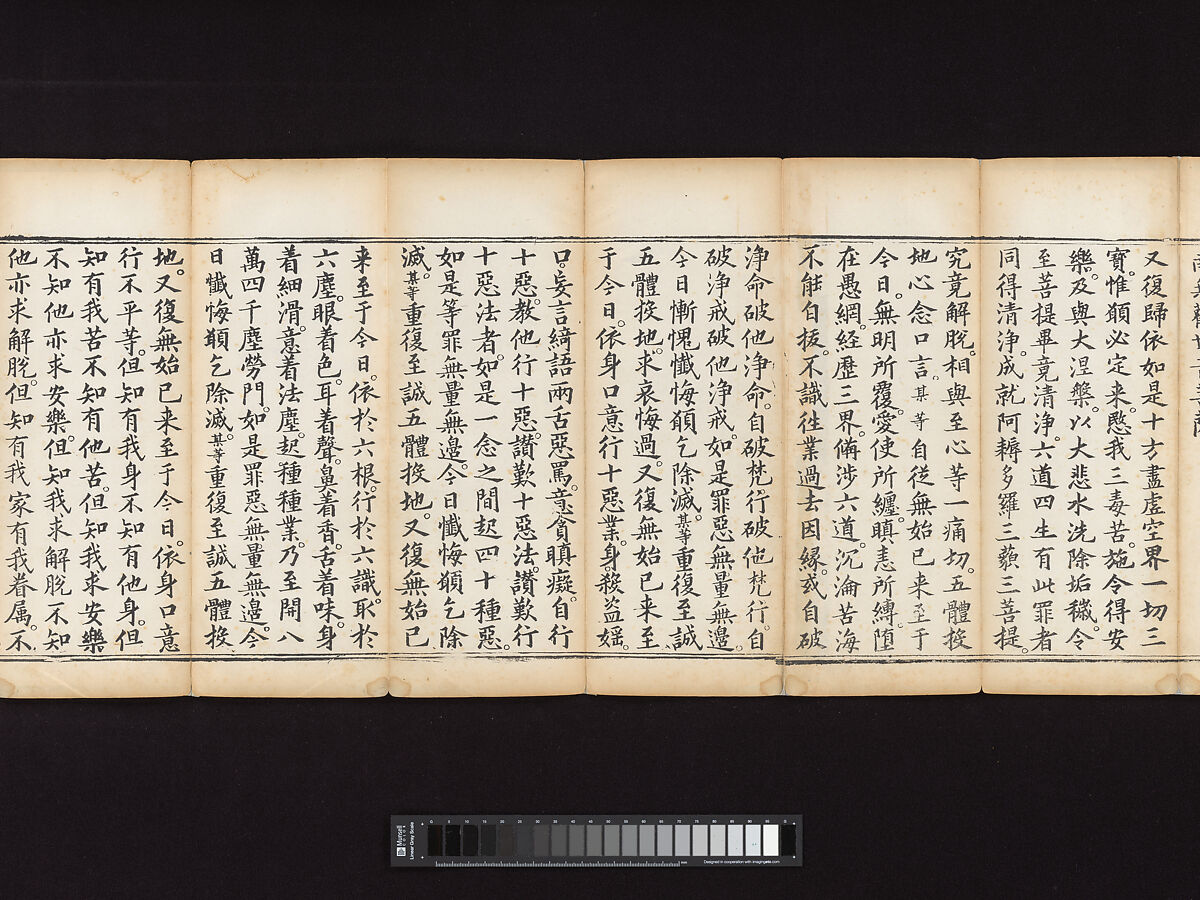 又復歸依如是十方盡虛空界一切三
寶。惟願必定来。愍我三毒苦。施令得安
樂。及與大涅槃。以大悲水洗除垢穢。令
至菩提畢竟清淨。六道四生有此罪者
同得清淨。成就阿耨多羅三藐三菩提。
究竟解脫。相與至心等一痛切。五體投
地心念口言。某等自從無始已来至于
今日。無明所覆。愛使所纏。瞋恚所縛。墮
在愚網。經歷三界。備涉六道。沉淪苦海
不能自拔。不識徃業過去因緣。或自破
淨命破他淨命。自破梵行破他梵行。自
破淨戒破他淨戒。如是罪惡無量無邊。
今日慚愧懺悔願乞除滅。某等重復至誠
五體投地。求哀悔過。又復無始已来至
于今日。依身口意行十惡業。身殺盜婬。
口妄言綺語兩舌惡罵。意貪瞋癡。自行
十惡。教他行十惡。讚歎十惡法。讚歎行
十惡法者。如是一念之間起四十種惡。
如是等罪無量無邊。今日懺悔願乞除
滅。某等重復至誠五體投地。又復無始已
来至于今日。依於六根行於六識。取於
六塵。眼着色。耳着聲。鼻着香。舌着味。身
着細滑。意着法塵。起種種業。乃至開八
萬四千塵勞門。如是罪惡無量無邊。今
日懺悔願乞除滅。某等重復至誠五體投
地。又復無始已来至于今日。依身口意
行不平等。但知有我身不知有他身。但
知有我苦不知有他苦。但知我求安樂
不知他亦求安樂。但知我求解脫不知
他亦求解脫。但知有我家有我眷属。不
Munsell
COLOR
Linear Gray Scale
0 5 10 15 20 25 30 35 40 45 50 55 60 65 70 75 80 85 90 95 G
mm
Designed in cooperation with imagingetc.com